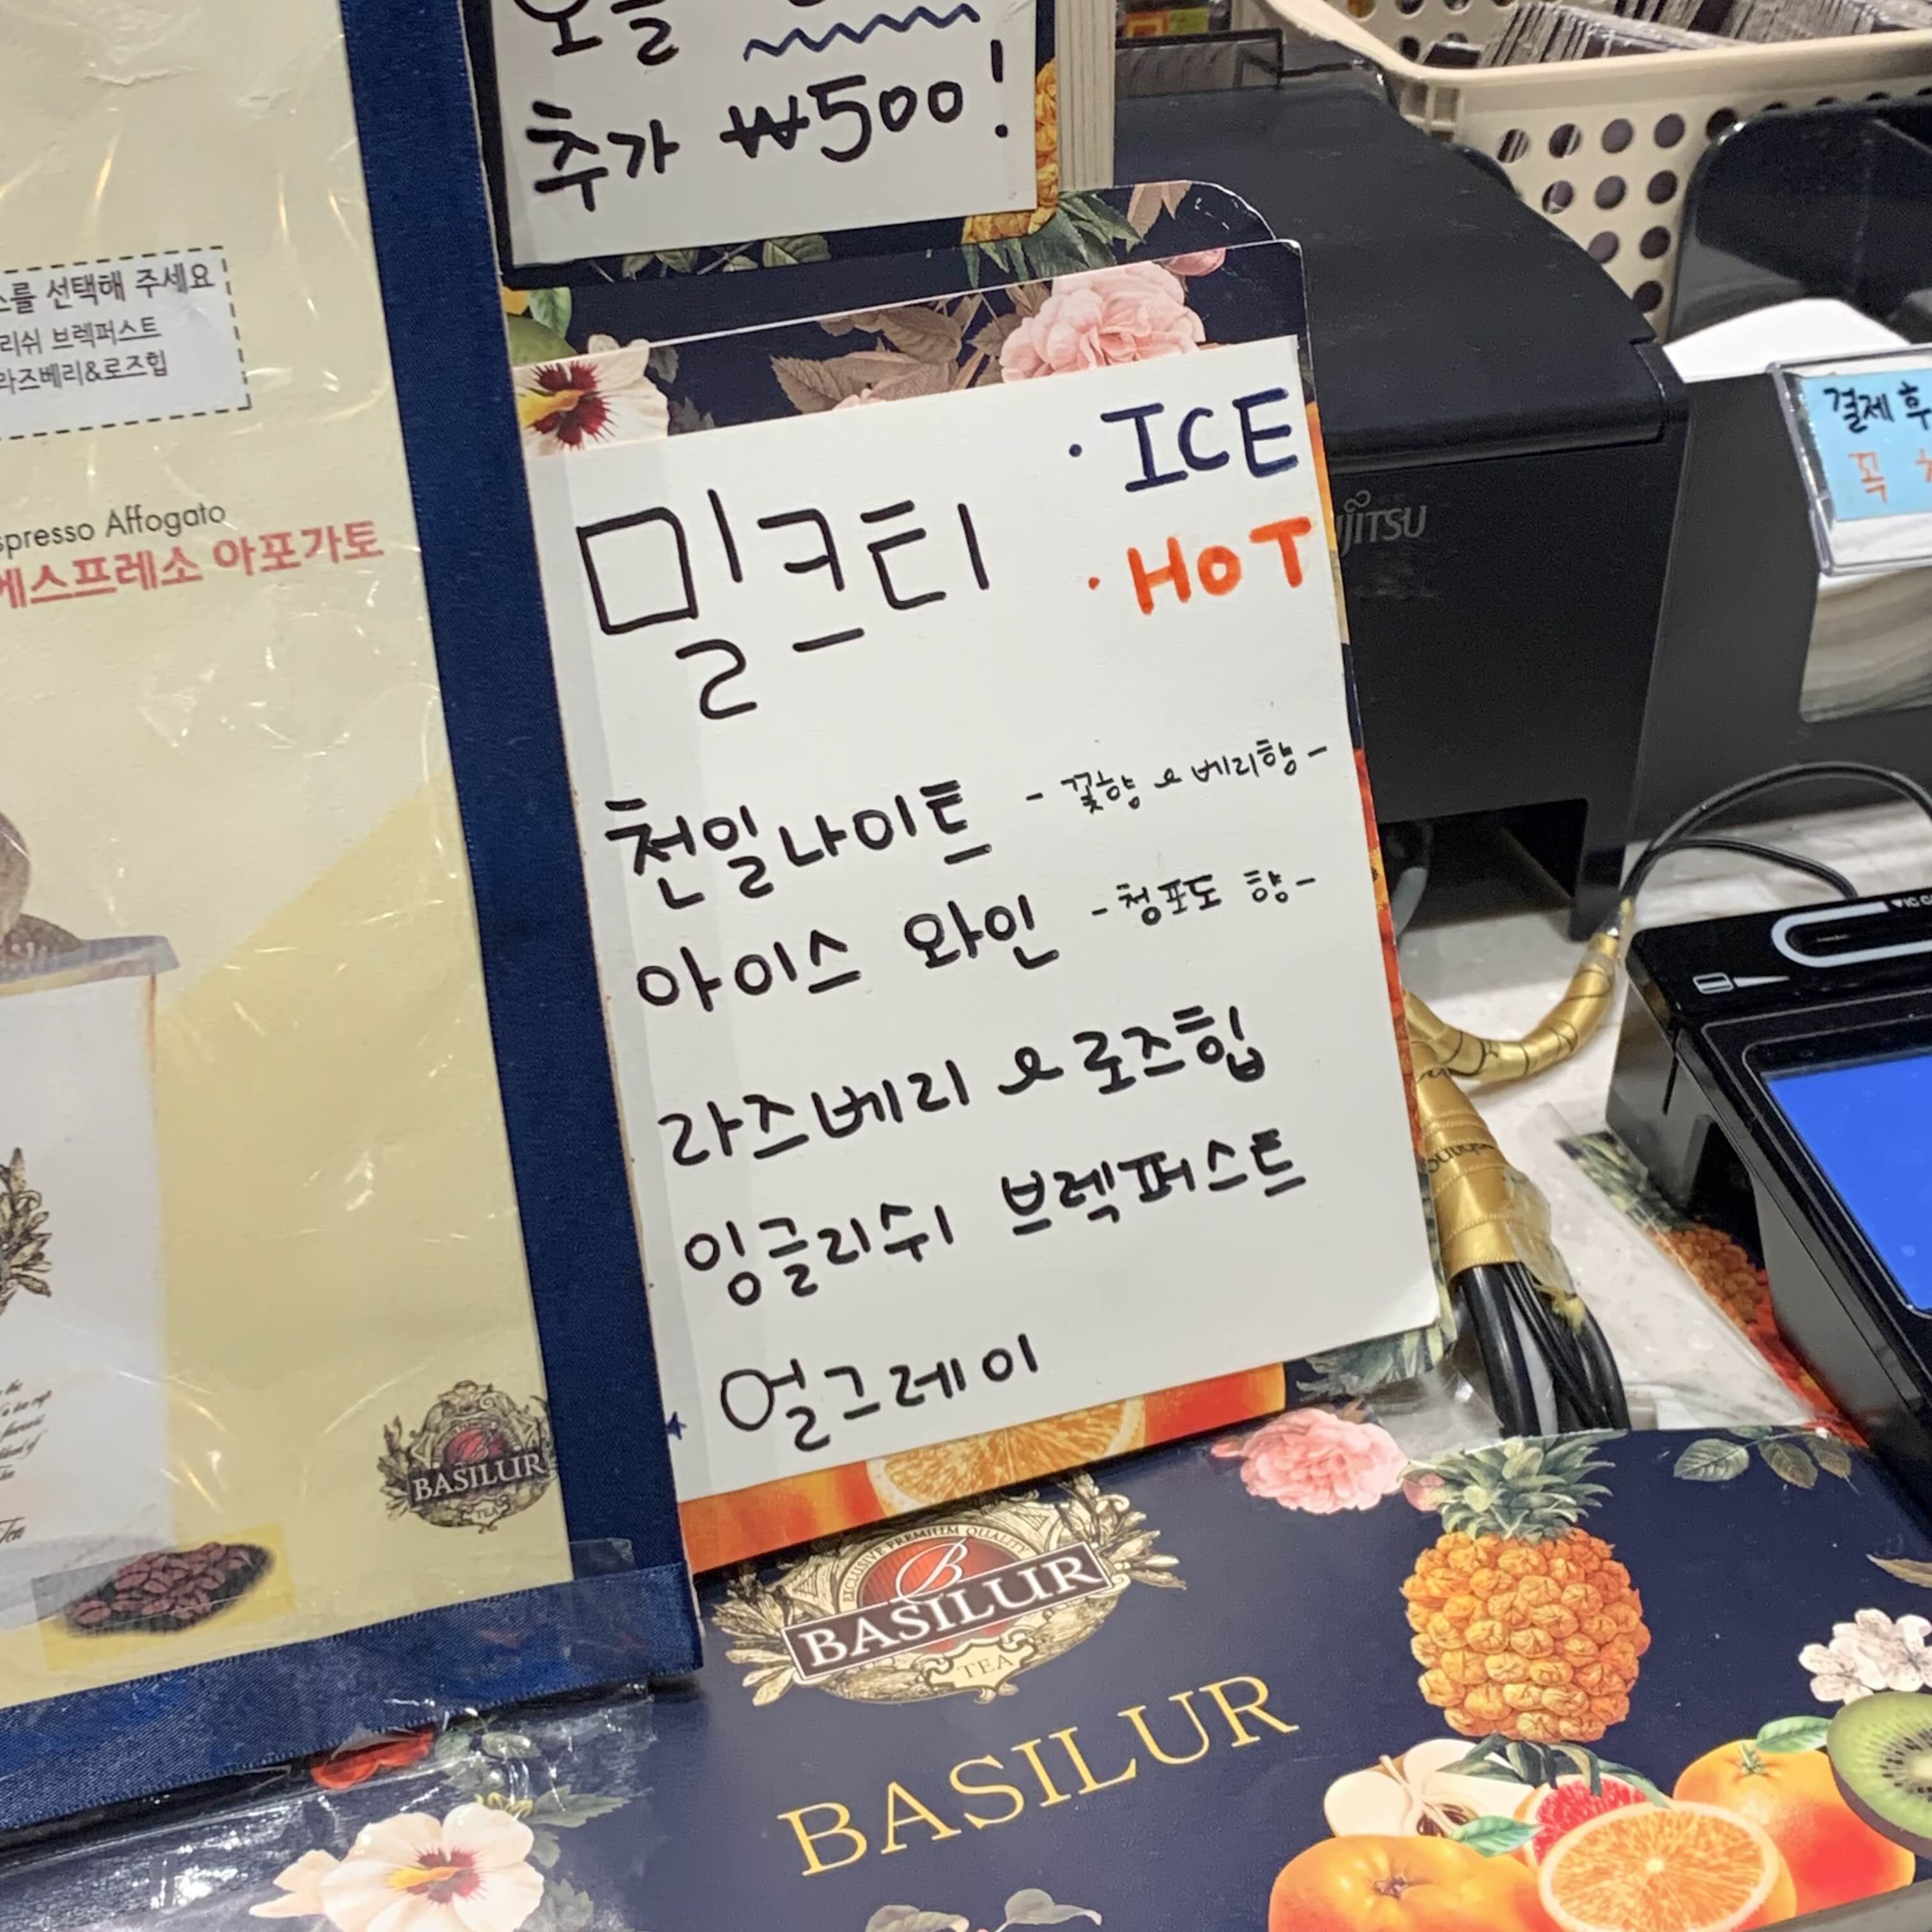 추가 ₩500!
선택해 주세요
브렉퍼스트
라즈베리&로즈힙
Affogato
에스프레소 아포가토
BASILUR
TEA
밀크티
· ICE
· HOT
천일나이트 - 꽃향 & 베리향 -
아이스 와인 - 청포도 향 -
라즈베리 & 로즈힙
잉글리쉬 브렉퍼스트
얼그레이
결제 후
꼭
EXCLUSIVE PREMIUM QUALITY
B
BASILUR
TEA
BASILUR